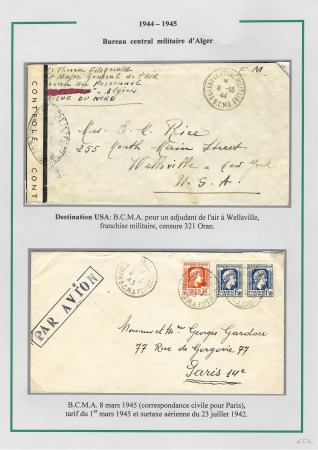 1944 – 1945
Bureau central militaire d'Alger
F. M.
Fitzgerald
Etat Major General de l'Air
Bureau du Personnel
Algiers
AFRIQUE DU NORD
CONTROLE CONT
Mrs. E. M. Rice
255 South Main Street
Wellsville – New York
U. S. A.
Destination USA: B.C.M.A. pour un adjudant de l'air à Wellsville,
franchise militaire, censure 321 Oran.
PAR AVION
Monsieur et Mme Georges Gardou
77 Rue de Gergovie 77
Paris 14e
B.C.M.A. 8 mars 1945 (correspondance civile pour Paris),
tarif du 1er mars 1945 et surtaxe aérienne du 23 juillet 1942.